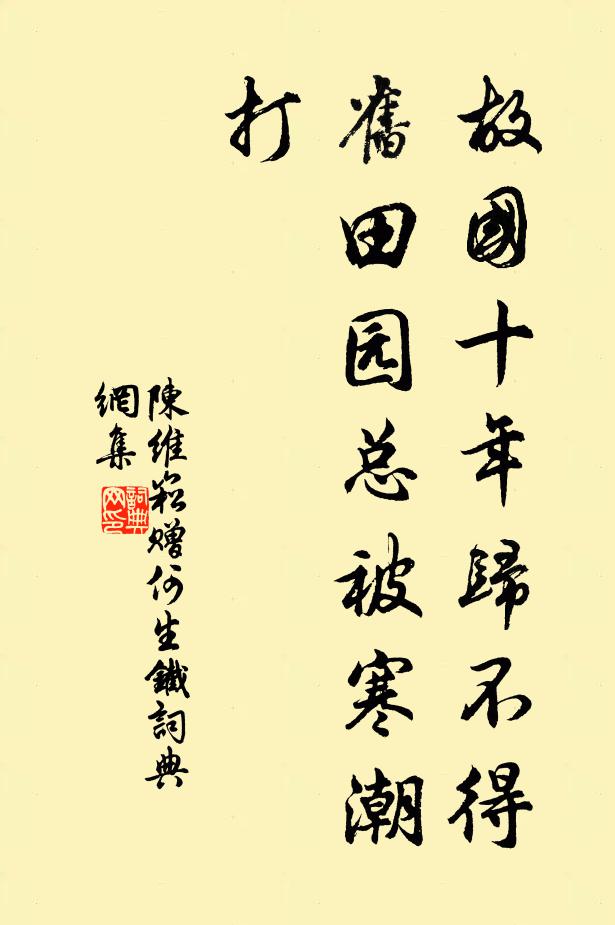 故國十年歸不得
舊田园总被寒潮
打
陳維崧贈何生鐵詞典
網集
詞典
网印